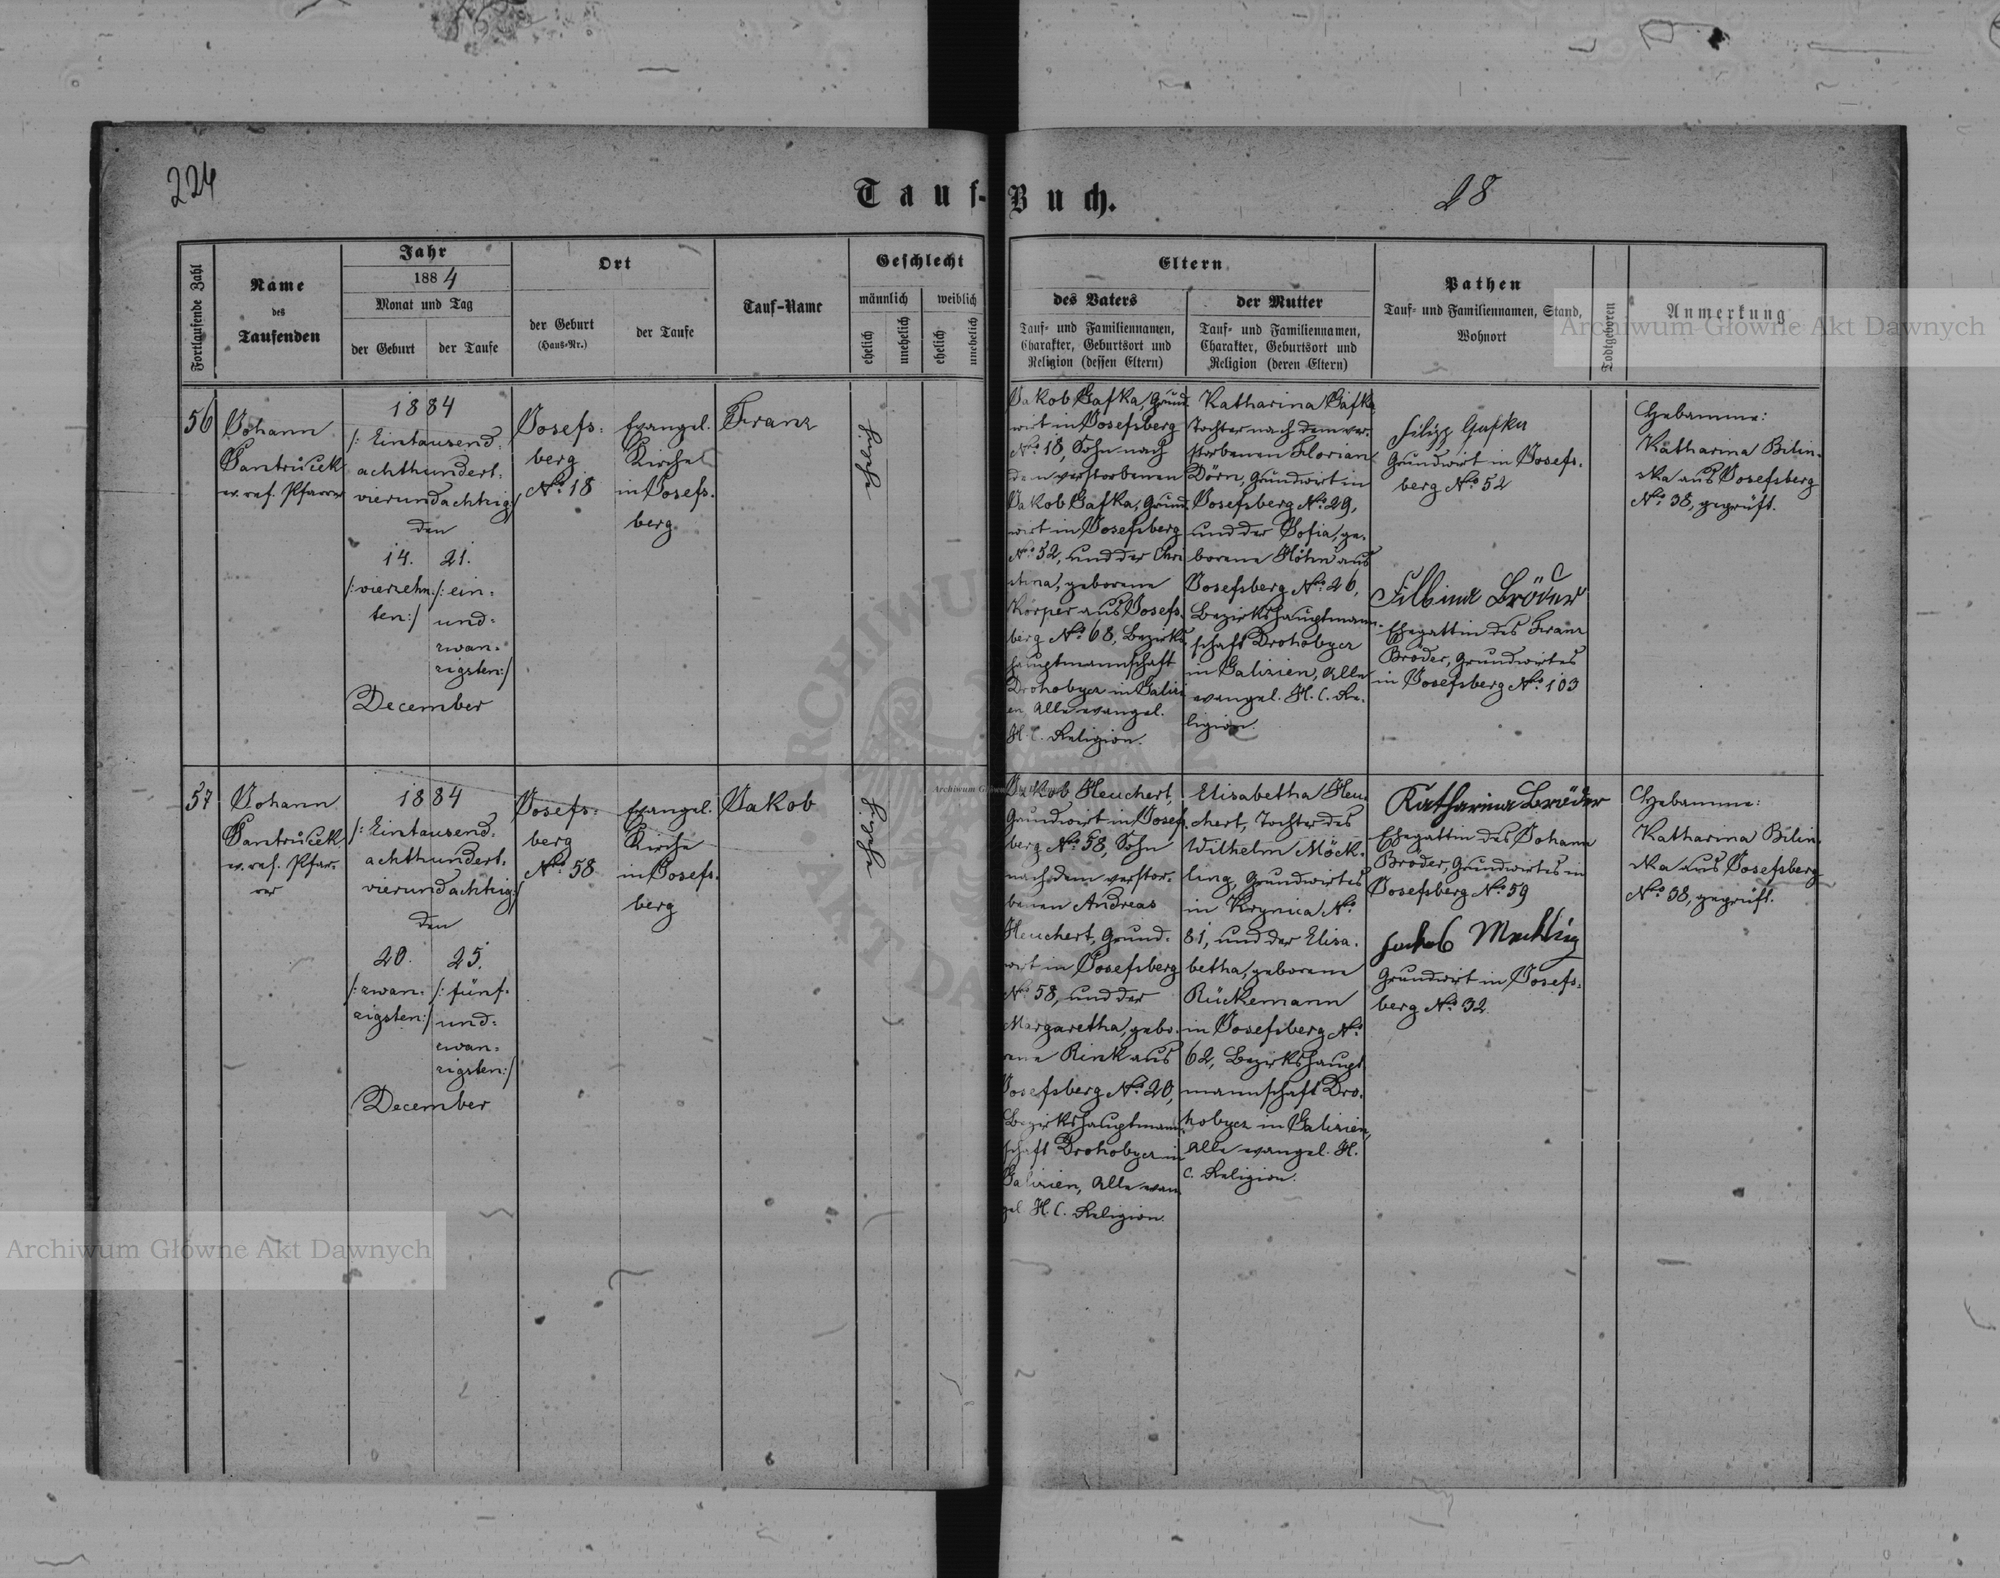 224
Tauf-Buch.
28
Fortlaufende Zahl
Name
des
Taufenden
Jahr
1884
Monat und Tag
der Geburt
der Taufe
Ort
der Geburt
(Haus-Nr.)
der Taufe
Tauf-Name
Geschlecht
männlich
weiblich
ehelich
unehelich
ehelich
unehelich
Eltern
des Vaters
Tauf- und Familiennamen,
Charakter, Geburtsort und
Religion (dessen Eltern)
der Mutter
Tauf- und Familiennamen,
Charakter, Geburtsort und
Religion (deren Eltern)
Pathen
Tauf- und Familiennamen, Stand,
Wohnort
Todtgeboren
Anmerkung
56
Johann
Jantrücek
ev. ref. Pfarrer
1884
/: Eintausend
achthundert
vierundachtzig :/
den
14. 21.
/: vierzehn- /: ein-
ten :/ und-
zwan-
zigsten :/
December
Josefs-
berg
No. 18
Evangel.
Kirche
in Josefs-
berg
Franz
ehelich
Jakob Gafka, Grund
wirt in Josefsberg
No. 18, Sohn nach
dem verstorbenen
Jakob Gafka, Grund
wirt in Josefsberg
No. 52, und der Chri
stina, geborene
Körper aus Josefs-
berg No. 68, Bezirks
hauptmannschaft
Drohobycz in Galizi
en, Alle evangel.
H. C. Religion.
Katharina Gafka
Tochter nach dem ver-
storbenen Florian
Dörn, Grundwirt in
Josefsberg No. 29,
und der Sofia, ge-
borene Höhn aus
Josefsberg No. 26,
Bezirkshauptmann-
schaft Drohobycz
in Galizien, Alle
evangel. H. C. Re-
ligion.
Filipp Gafka
Grundwirt in Josefs-
berg No. 52
Bröder
Ehegattin des Franz
Bröder, Grundwirtes
in Josefsberg No. 103
Hebamme:
Katharina Bilin-
ska aus Josefsberg
No. 38, geprüft.
57
Johann
Jantrücek
ev. ref. Pfar-
rer
1884
/: Eintausend-
achthundert-
vierundachtzig :/
den
20. 25.
/: zwan- /: fünf-
zigsten :/ und-
zwan-
zigsten :/
December
Josefs-
berg
No. 58
Evangel.
Kirche
in Josefs-
berg
Jakob
ehelich
Jakob Heuchert,
Grundwirt in Josef
berg No. 58, Sohn
nach dem verstor-
benen Andreas
Heuchert, Grund-
wirt in Josefsberg
No. 58, und der
Margaretha, gebo-
rene Rink aus
Josefsberg No. 20,
Bezirkshauptmann-
schaft Drohobycz in
Galizien, Alle evan
gel H. C. Religion.
Elisabetha Heu
chert, Tochter des
Wilhelm Möck-
ling, Grundwirtes
in Krynica No.
81, und der Elisa-
betha, geborene
Rückemann
in Josefsberg No.
62, Bezirkshaupt
mannschaft Dro-
hobycz in Galizien,
Alle evangel. H.
C. Religion.
Katharina Bröder
Ehegattin des Johann
Bröder, Grundwirtes in
Josefsberg No. 59
Jackob Mechling
Grundwirt in Josefs-
berg No. 32
Hebamme:
Katharina Bilin-
ska aus Josefsberg
No. 38, geprüft.
Archiwum Główne Akt Dawnych
Archiwum Główne Akt Dawnych